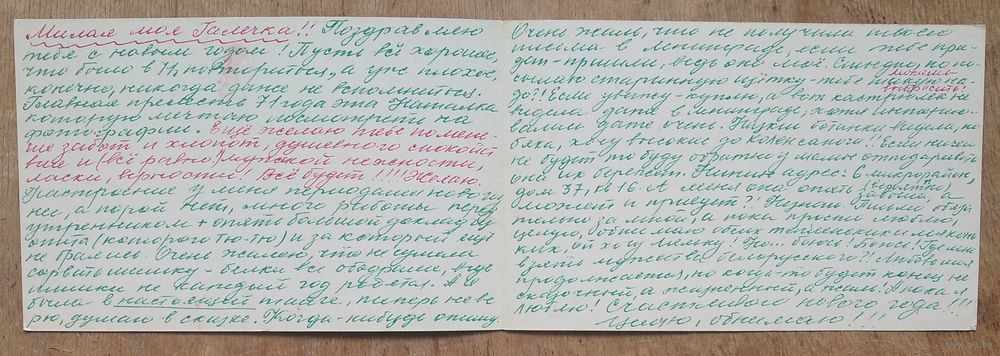 Милая моя Галечка!! Поздравляю
тебя с новым годом! Пусть всё хорошее,
что было в 71, повторится, а уже плохое,
конечно, никогда даже не вспомнится.
Главная прелесть 71 года эта Наталка
которую мечтаю посмотреть на
фотографии. Ещё желаю тебе помень-
ше забот и хлопот, душевного спокойст
вия и (всё равно) мужской нежности,
ласки, верности! Всё будет!!!! Желаю.
Настроение у меня последнее
нее, а порой нет, много работы перед
утренником + опять большой доклад из
опыта (которого тю-тю) и за который ещё
не брались. Очень жалею, что не сумела
сорвать шишку - белки все ободрали, ведь
шишки не каждый год родятся. А я
была в настоящей тайге, теперь не ве-
рю, думаю в сказке. Когда-нибудь опишу.
Очень жаль, что не получили твоего
письма в Ленинграде, если тебе при-
дет - пришли, ведь оно моё. Смешно, но по-
сылаю старинную щётку - тебе такую на-
до?! Если увижу - куплю, а вот кастрюлек не
видела даже в Ленинграде, хотя интересо-
валась даже очень. Низкие ботинки видела, но
бяка, хочу высокие до колен сапоги!! Если ничего
не будет то буду
она их бережет. Пишите адрес: 6 микрорайон,
дом 37, кв 16. А меня она опять звонила, а
может и приедет?! Незнаю. Письмо обяза-
тельно за мной, а пока просто люблю,
целую, обнимаю обеих
ких, ой хочу Ляльку! Но... боюсь! Боюсь! Где мне
взять мужества белорусского?! Любовь моя
продолжается, но когда-то будет конец не
сказочный, а жизненный, а жаль! А пока я
люблю! Счастливого нового года!!!
Целую, обнимаю!!!
www.ay.by